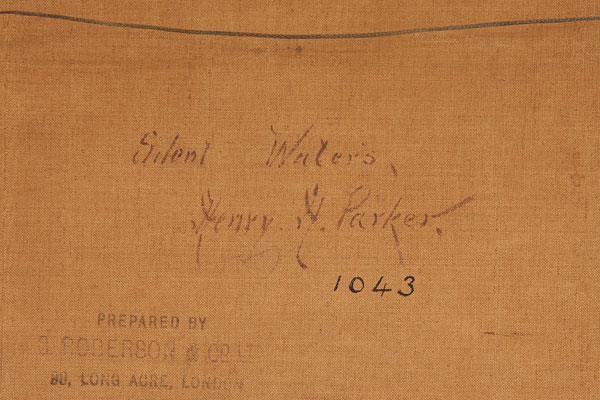 Silent Waters,
Henry. H. Parker.
1043
PREPARED BY
ROBERSON & CO. LTD
99, LONG ACRE, LONDON